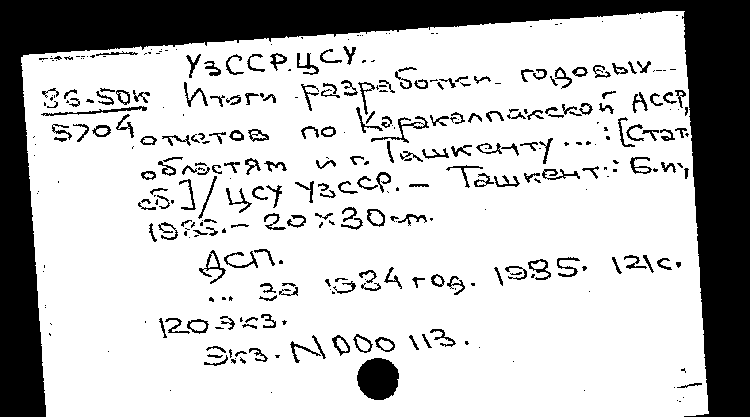 УзССР. ЦСУ..
86.50к Итоги разработки годовых
5704 отчетов по Каракалпакской АССР,
областям и г. Ташкенту ... : [Стат.
сб.] / ЦСУ УзССР. – Ташкент : Б.и.,
1985. – 20 х 30 см.
ДСП.
... за 1984 год. 1985. 121 с.
120 экз.
Экз. N 000 113.